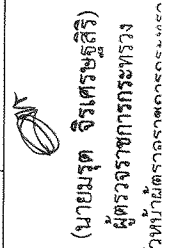 (นายมรุต จิรเศรษฐสิริ)
ผู้ตรวจราชการกระทรวง